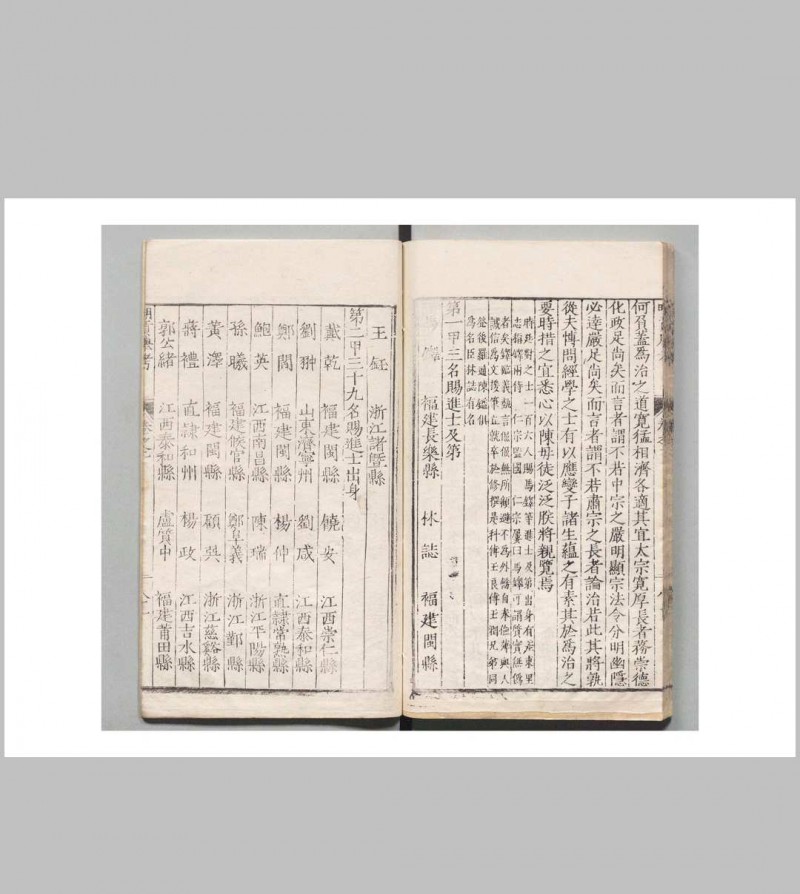 何貟蓋為治之道寬猛相濟各適其宜太宗寬厚長者務崇德
化政足尚矣而言者謂不若中宗之嚴明顯宗法令分明幽隱
必達嚴足尚矣而言者謂不若肅宗之長者論治若此其將孰
從夫博問經學之士有以應變子諸生蘊之有素其於為治之
要時措之宜悉心以陳毋徒泛泛朕將親覽焉
時廷對之士一百六人賜馬鐸等進士及第出身有差東里
誠信為文陵筆立就卒
為名臣林誌有名
第一甲三名賜進士及第
馬鐸 福建長樂縣 林誌 福建閩縣
王鈺 浙江諸暨縣
第二甲三十九名賜進士出身
戴乾 福建閩縣 饒安 江西崇仁縣
劉翀 山東濟寧州 劉咸 江西泰和縣
鄭閻 福建閩縣 楊仲 直隷常熟縣
鮑英 江西南昌縣 陳瑞 浙江平陽縣
孫曦 福建候官縣 鄭阜義 浙江鄞縣
黃澤 福建閩縣 顧巽 浙江慈谿縣
蔣禮 直隷和州 楊政 江西吉水縣
郭公緒 江西泰和縣 盧質中 福建莆田縣